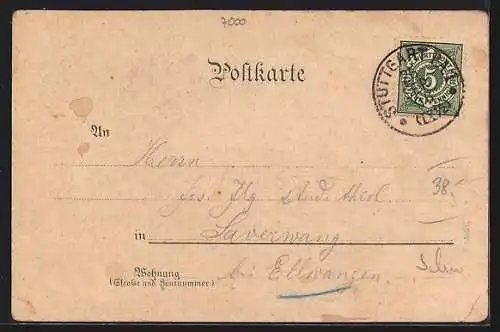 7000
Postkarte
STUTTGART
5
An
Herrn
Jos. Ilg stud. theol
38.-
in Saverwang
Wohnung
bei Ellwangen.
(Straße und Hausnummer)